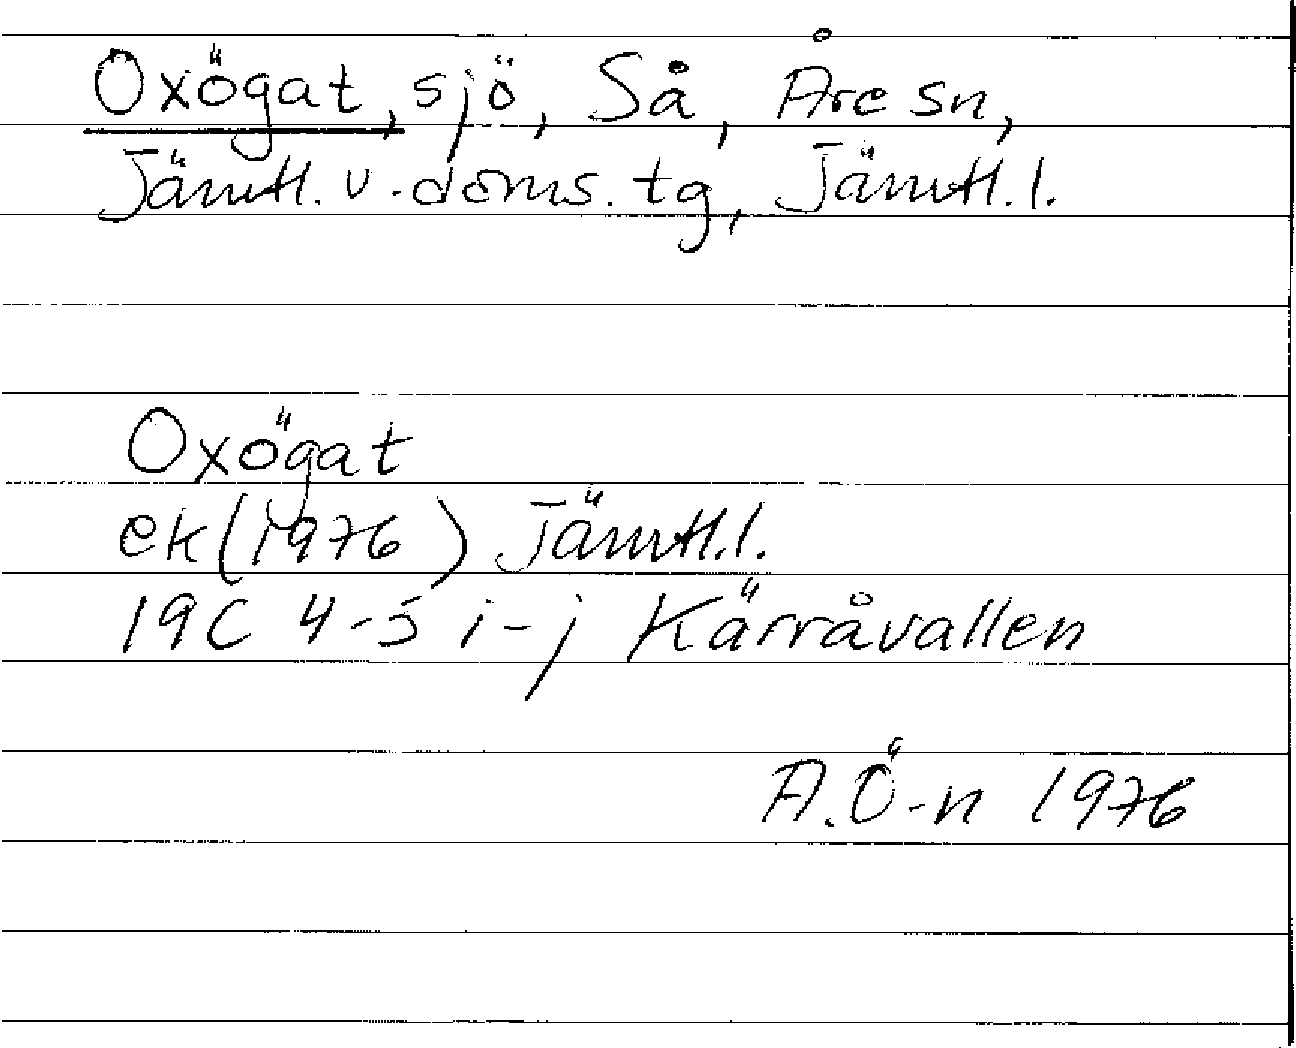 Oxögat, sjö, Så, Åre sn,
Jämtl. v. doms. tg, Jämtl. l.
Oxögat
ek (1976) Jämtl. l.
19C 4-5 i-j Kärråvallen
A.Ö-n 1976